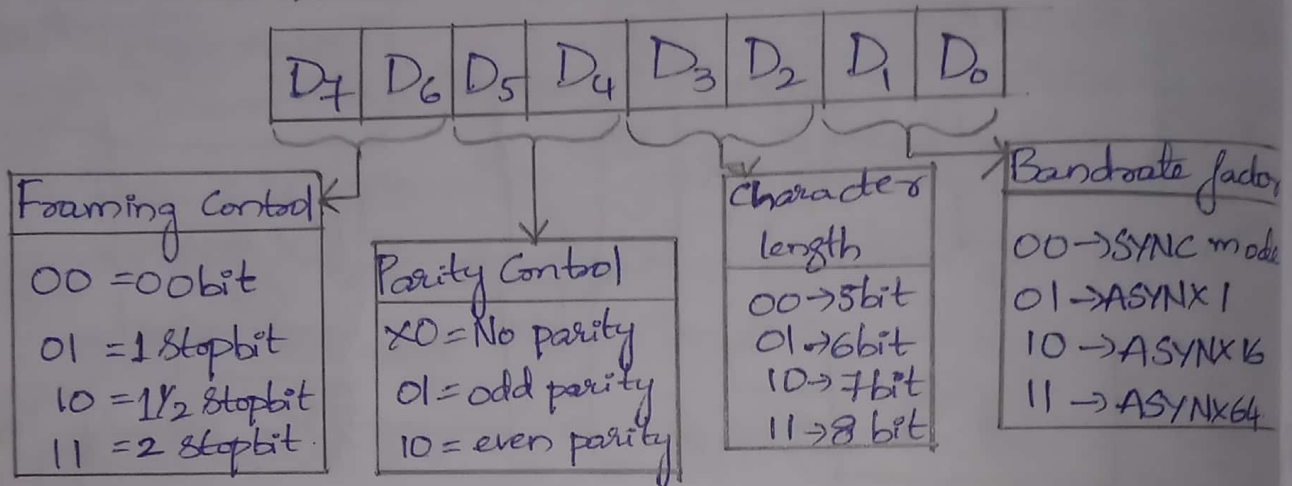 D7 D6 D5 D4 D3 D2 D1 D0
Framing Control
00 = 00bit
01 = 1 Stopbit
10 = 1 1/2 Stopbit
11 = 2 Stopbit.
Parity Control
X0 = No parity
01 = odd parity
10 = even parity
Character
length
00 → 5bit
01 → 6bit
10 → 7bit
11 → 8 bit
Baudrate factor
00 → SYNC mode
01 → ASYNX1
10 → ASYNX16
11 → ASYNX64